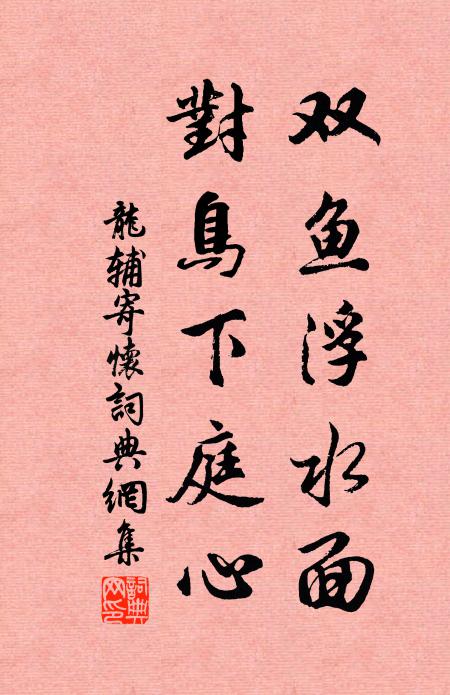 双鱼浮水面
對鳥下庭心
龍辅寄懷詞典網集
詞典网印